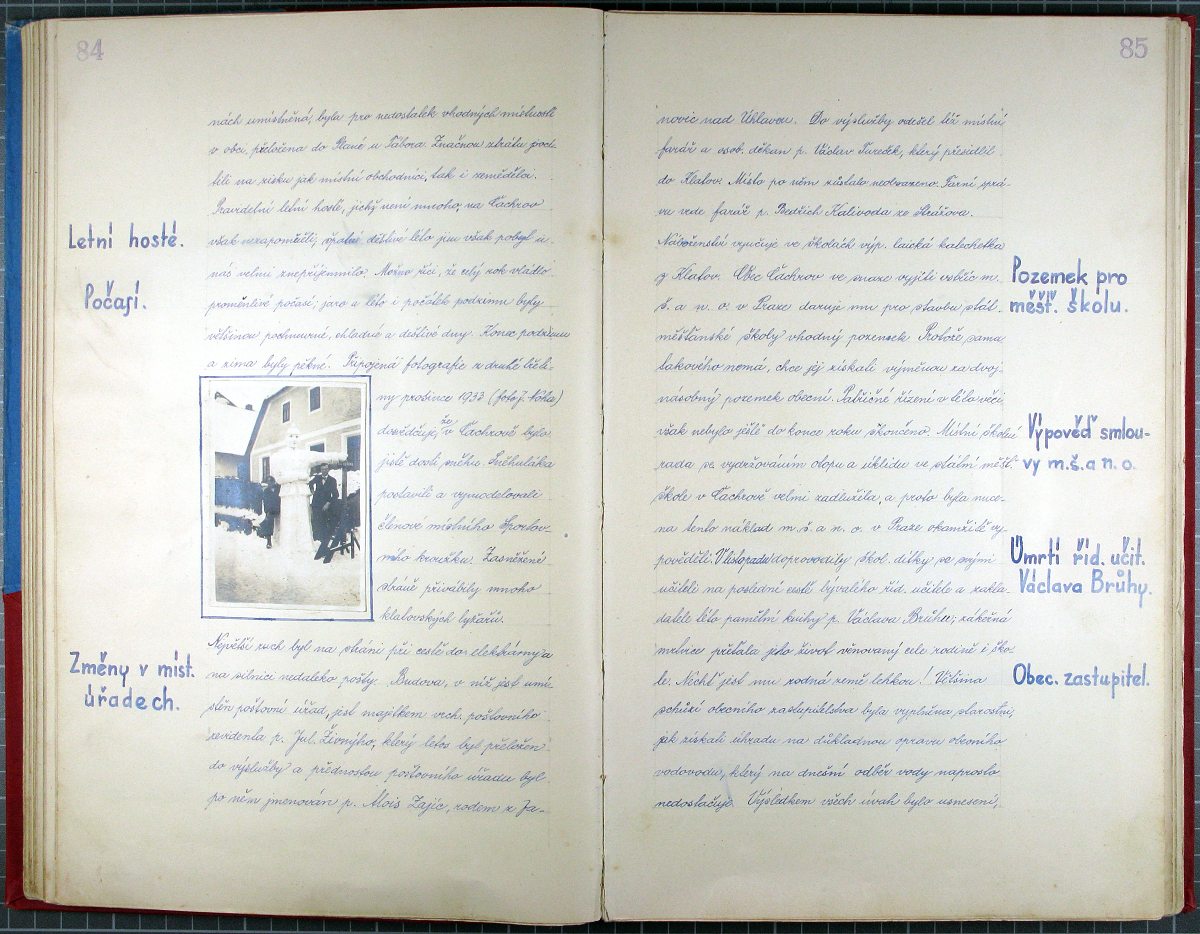 84
nách umístněná, byla pro nedostatek vhodných místností
v obci, přeložena do Plané u Tábora. Značnou ztrátu poci-
tili na zisku jak místní obchodníci, tak i zemědělci.
Pravidelní letní hosté, jichž není mnoho, na Čachrov
Letní hosté.
však nezapomněli; špatné deštivé léto jim však pobyt u
nás velmi znepříjemnilo. Možno říci, že celý rok vládlo
Počasí.
proměnlivé počasí; jaro a léto i počátek podzimu byly
většinou pochmurné, chladné a deštivé dny. Konec podzimu
a zima byly pěkné. Připojená fotografie z druhé těti-
ny prosince 1933 (foto J. Vohla)
dosvědčuje, že v Čachrově bylo
jistě dosti sněhu. Sněhuláka
postavili a vymodelovali
členové místního Sportov.
ního kroužku. Zasněžené
stráně přivábily mnoho
klatovských lyžařů.
Největší ruch byl na stráni při cestě do elektrárny a
Změny v míst.
úřadech.
na silnici nedaleko pošty. Budova, v níž jest umí-
stěn poštovní úřad, jest majetkem vrch. poštovního
revidenta p. Jul. Živnýho, který letos byl přeložen
do výslužby a přednostou poštovního úřadu byl
po něm jmenován p. Alois Zajíc, rodem z Ja-
85
novic nad Úhlavou. Do výslužby odešel též místní
farář a osob. děkan p. Václav Tureček, který přesídlil
do Klatov. Místo po něm zůstalo neobsazeno. Farní sprá-
vu vede farář p. Bedřich Kalivoda ze Strážova.
Náboženství vyučuje ve školách výp. laická katechetka
z Klatov. Obec Čachrov ve snaze vyjíti vstříc m.
Pozemek pro
měšť. školu.
š. a n. o. v Praze daruje mu pro stavbu stát.
měšťanské školy vhodný pozemek. Protože sama
takového nemá, chce jej získati výměnou za dvoj-
násobný pozemek obecní. Patřičné řízení v této věci
však nebylo ještě do konce roku skončeno. Místní školní
Výpověď smlou-
vy m.š. a n. o.
rada se vydržováním otopu a úklidu ve státní měšť.
škole v Čachrově velmi zadlužila, a proto byla nuce-
na tento náklad m. š. a n. o. v Praze okamžitě vy-
pověděti. V listopadu doprovodily škol. dítky se svými
Úmrtí říd. učit.
Václava Brůhy.
učiteli na poslední cestě bývalého říd. učitele a zakla-
datele této pamětní knihy p. Václava Brůhu; zákeřná
mrtvice přeťala jeho život věnovaný cele rodině i ško-
le. Nechť jest mu rodná země lehkou! Většina
Obec. zastupitel.
schůzí obecního zastupitelstva byla vyplněna starostmi,
jak získati úhradu na důkladnou opravu obecního
vodovodu, který na dnešní odběr vody naprosto
nedostačuje. Výsledkem všech úvah bylo usnesení,